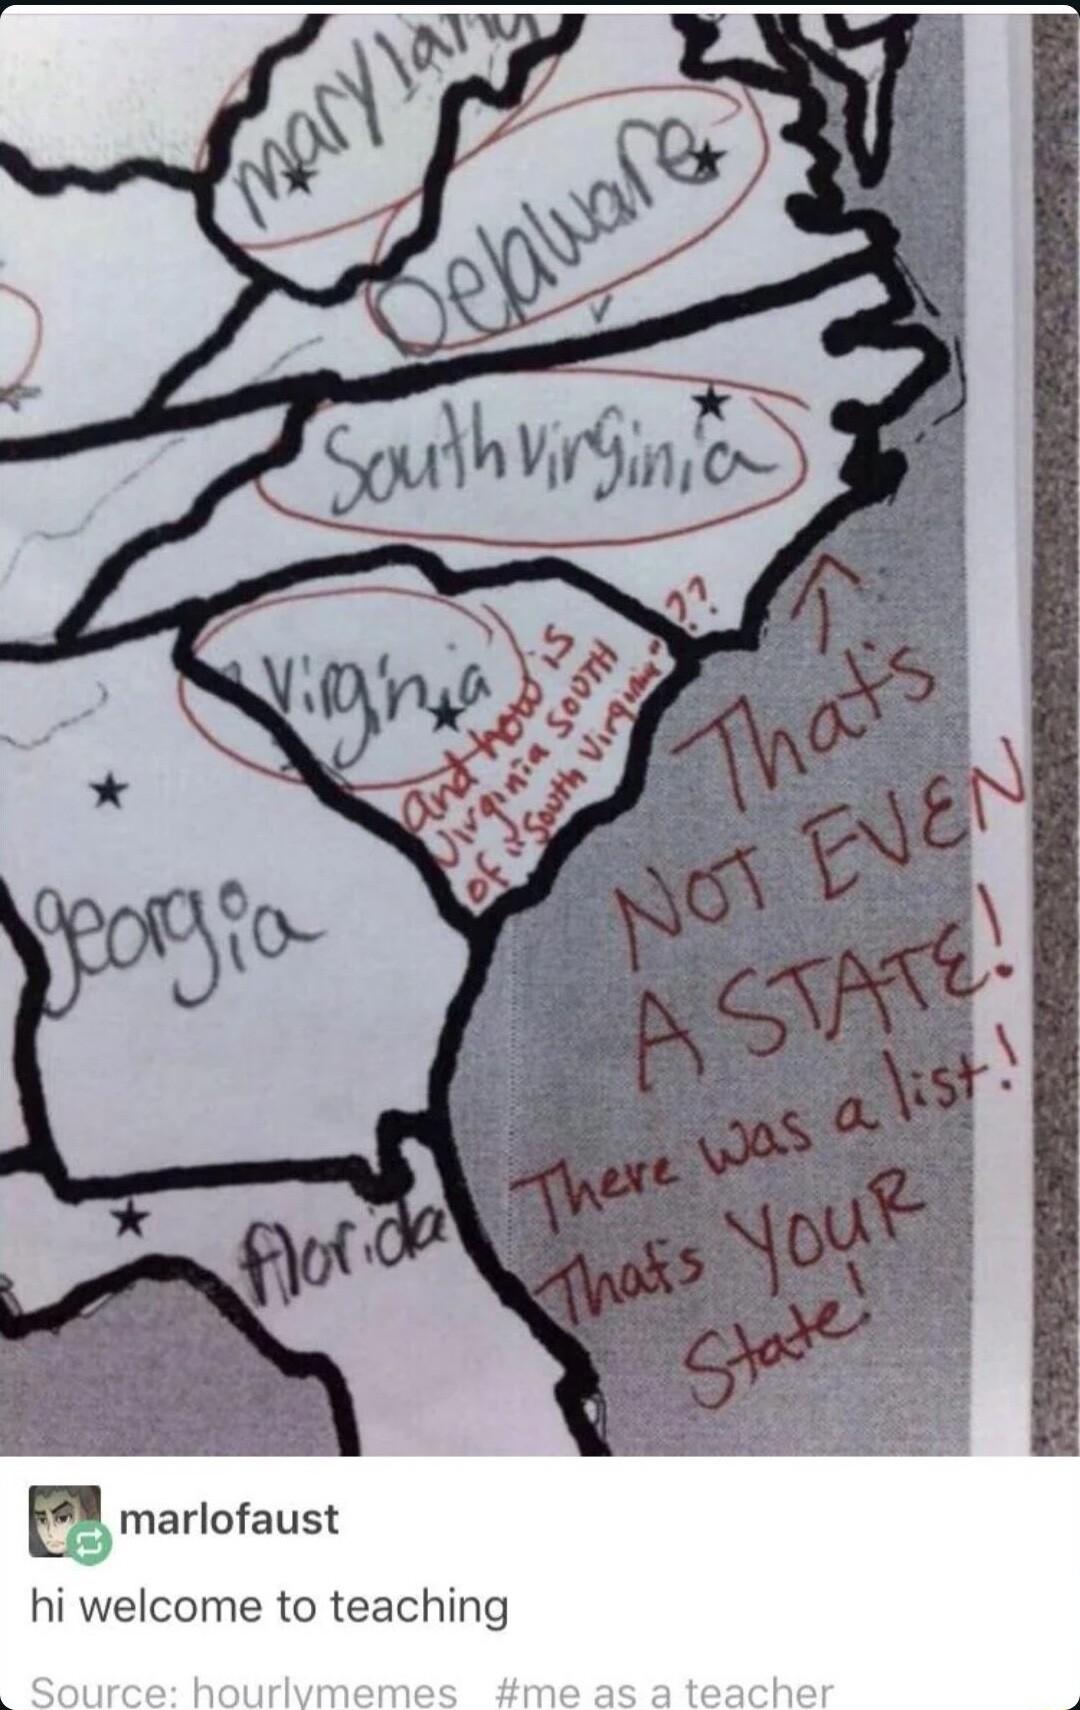 maryland
Delaware
South Virginia
Virginia
and how is
Virginia SOUTH
of "South Virginia" ??
That's
NOT EVEN
A STATE!
There was a list!
That's YOUR
State!
georgia
florida
marlofaust
hi welcome to teaching
Source: hourlymemes #me as a teacher